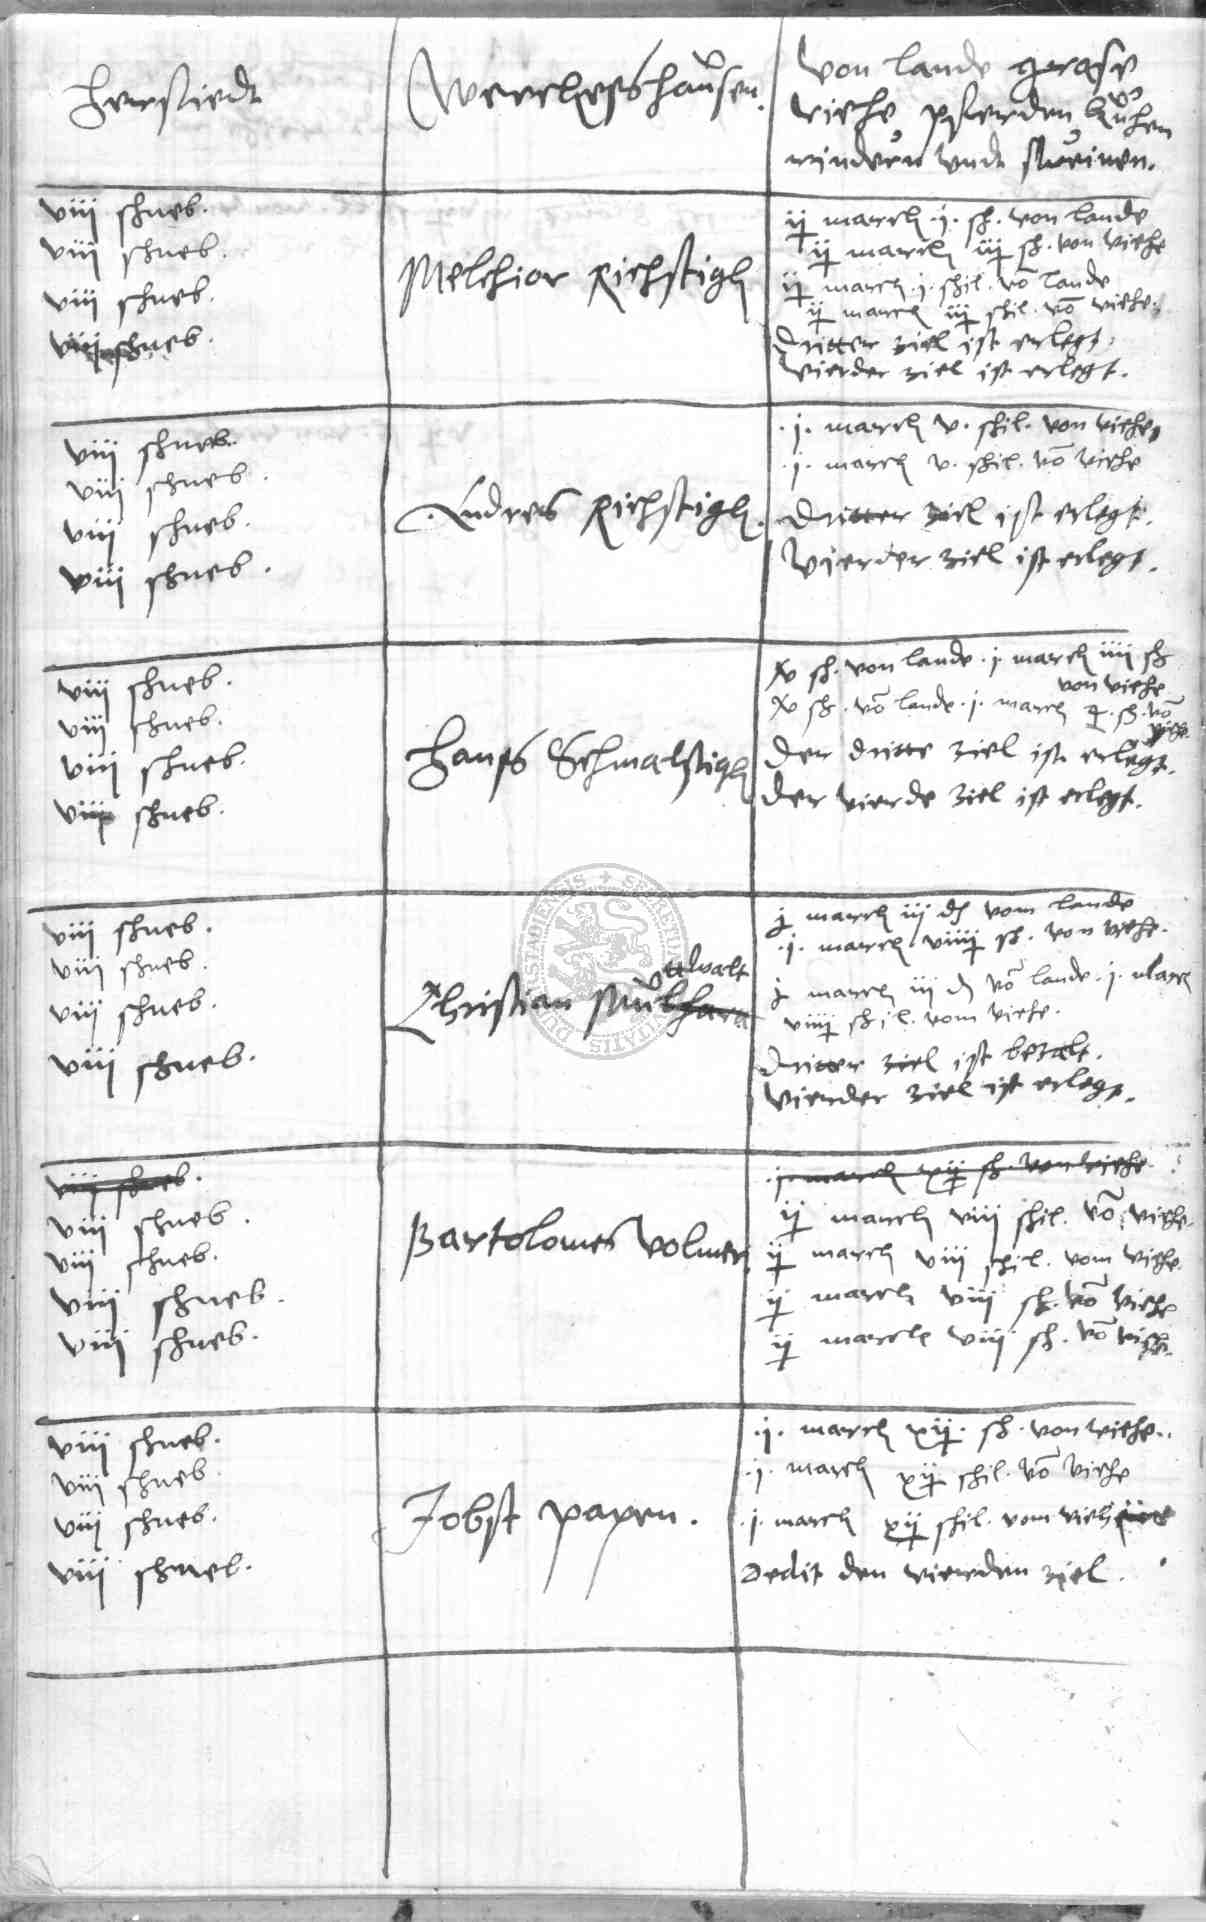 herstedt
Werlheshausen.
Von lande grase
viehe pferden kuhen
rindern vndt sweinen.
viii schneb.
viii schneb.
viii schneb.
viii schneb.
Melchior Richstigh
ij march .j. sh. von lande
ij march iij sh. von viehe
ij march .j. shil. vō lande
ij march iij shil. vō viehe.
Dritter ziel ist erlegt.
Vierder ziel ist erlegt.
viii schneb.
viii schneb.
viii schneb.
viii schneb.
Andres Richstigh.
.j. march v. shil. von viehe
.j. march v. shil. vō viehe
Dritter ziel ist erlegt.
Vierder ziel ist erlegt.
viii schneb.
viii schneb.
viii schneb.
viii schneb.
Hans Schmalstigh
xv sh. von lande .j. march iiii sh
von viehe
xv sh. vō lande .j. march sh. vō
viehe
Der dritte ziel ist erlegt.
Der vierde ziel ist erlegt.
viii schneb.
viii schneb.
viii schneb.
viii schneb.
Christian
j march iii vom lande
.j. march viiij sh. von viehe.
j march iii vō lande .j. march
viiij shil. vom viehe.
Dritter ziel ist bezalt.
Vierder ziel ist erlegt.
viii schneb.
viii schneb.
viii schneb.
viii schneb.
viii schneb.
Bartolomes Volmer
.j. march xij sh. von viehe
ij march viii shil. vō viehe.
ij march viii shil. vom viehe.
ij march viii sh. vō viehe
ij march viii sh. vō viehe.
viii schneb.
viii schneb.
viii schneb.
viii schneb.
Jobst Papen.
.j. march xij. sh. von viehe.
.j. march xij shil. vō viehe
.j. march xij shil. vom vieh
Dedit den vierden ziel.